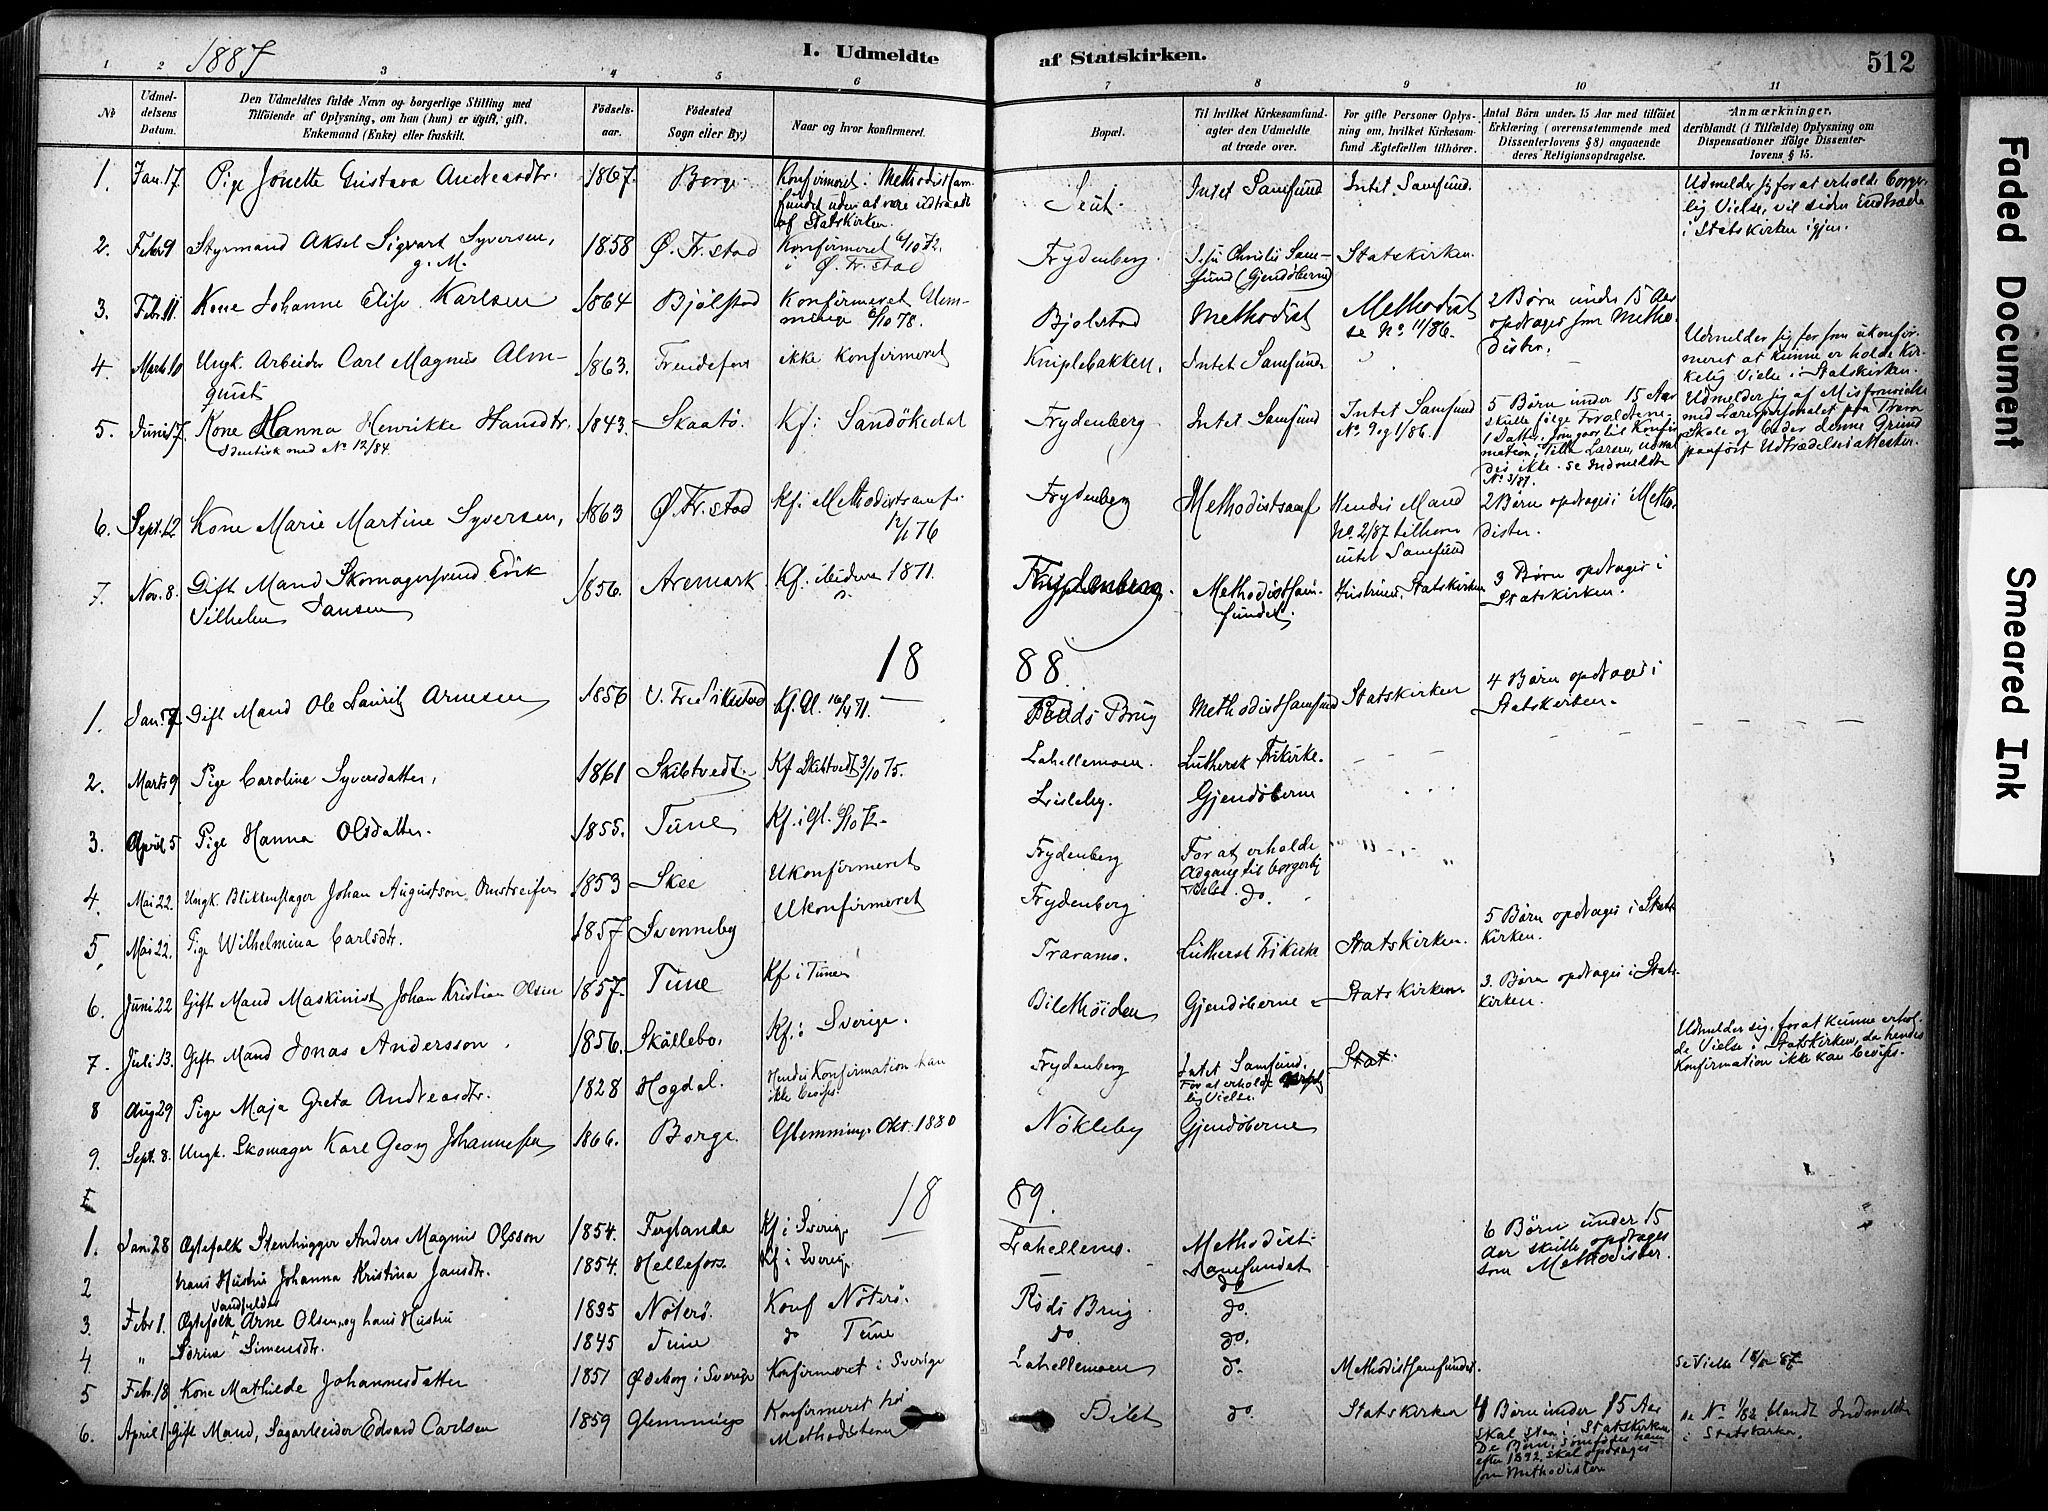 1887
I. Udmeldte af Statskirken.
512
1 2 3 4 5 6 7 8 9 10 11
№
Udmeldelsens Datum.
Den Udmeldtes fulde Navn og borgerlige Stilling med Tilföiende af Oplysning, om han (hun) er ugift, gift, Enkemand (Enke) eller fraskilt.
Födselsaar.
Födested Sogn eller By)
Naar og hvor konfirmeret.
Bopæl.
Til hvilket Kirkesamfund agter den Udmeldte at træde over.
For gifte Personer Oplysning om, hvilket Kirkesamfund Ægtefællen tilhörer.
Antal Börn under 15 Aar med tilföiet Erklæring (overensstemmende med Dissenterlovens § 8) angaaende deres Religionsopdragelse.
Anmærkninger, deriblandt (i Tilfælde) Oplysning om Dispensationer ifölge Dissenterlovens § 15.
1. Jan. 17 Pige Jonette Gustava Andreasdtr. 1867. Borge Konfirmeret i Methodistsamfundet uden at være udtraadt af Statskirken. Seut. Intet Samfund Intet Samfund. Udmelder sig for at erholde borgerlig Vielse, vil siden indtræde i Statskirken igjen.
2. Febr 9 Styrmand Aksel Sigvart Syversen, g. M. 1858 Ø. Fr.stad Konfirmeret 6/10 72. i Ø. Fr.stad Frydenberg. Jesu Christi Samfund (Gjendøberne) Statskirken.
3. Febr. 11. Kone Johanne Elise Karlsen 1864 Bjølstad Konfirmeret Glemminge 6/10 78. Bjølstad Methodist Methodist se No. 11/86. 2 Børn under 15 Aar opdrages som Methodister.
4. Marts 10 Ungk. Arbeider Carl Magnus Almquist 1863. ikke konfirmeret Kniplebakken. Intet Samfund. Udmelder sig for som ukonfirmeret at kunne erholde Kirkelig Vielse i Statskirken.
5. Juni 17. Kone Hanna Henrikke Hansdtr. Identisk med No 12/84. 1843. Skaatø. Kf: Sandökedal Frydenberg. Intet Samfund Intet Samfund No. 9 og 1/86. 5 Børn under 15 Aar skulle følge Forældrene. 1 Datter, som gaar til Konfirmation, Tilla Larsen, udmeldes ikke. se Indmeldte No. 3/87. Udmelder sig af Misfornøielse med Lærerpersonalet paa Trara Skole og beder denne Grund paaført Udtrædelsesattester.
6. Sept. 12 Kone Marie Martine Syversen, 1863 Ø. Fr. stad Kf: Methodistsamf. 12/1 76 Frydenberg Methodistsamf Hendes Mand No. 2/87 tilhører intet Samfund 2 Børn opdrages i Methodister.
7. Nov. 8. Gift Mand Skomagersvend Erik Vilhelm Jansen 1856. Aremark Kf. ibidem 1871. Frydenberg. Methodistsamfundet. Hustruen: Statskirken 3 Børn opdrages i Statskirken.
18 88
1. Jan. Gift Mand Ole Lauritz Arnesen 1856 V. Fredrikstad Kf. Gl. 16/4 71. Røds Brug Methodistsamfund Statskirken 4 Børn opdrages i Statskirken.
2. Marts 9 Pige Caroline Syversdatter, 1861 Skibtvedt. Kf Skibtvedt 3/10 75. Lahellemoen. Luthersk Frikirke.
3. April 5 Pige Hanna Olsdatter. 1855. Tune Kf. i Gl. 6/10 72. Lisleby. Gjendøberne
4. Mai 22. Ungk. Blikkenslager Johan Augustson Omstreifer 1853 Skee Ukonfirmeret Frydenberg For at erholde Adgang til borgerlig Vielse.
5. Mai 22. Pige Wilhelmina Carlsdtr. 1857 Svenneby Ukonfirmeret Frydenberg do.
6. Juni 22 Gift Mand Maskinist Johan Kristian Olsen 1857. Tune Kf i Tune Traramo. Luthersk Frikirke Statskirken. 5 Børn opdrages i Statskirken.
7. Juli 13. Gift Mand Jonas Andersson. 1856. Skällebo. Kf. i Sverige. Bilethöiden Gjendøberne Statskirken. 3. Børn opdrages i Statskirken.
8 Aug 29 Pige Maja Greta Andreasdtr. 1828 Hogdal. Hendes Konfirmation kan ikke bevises. Frydenberg Intet Samfund. For at erholde kirkelig Vielse. Stat. Udmelder sig for at kunne erholde Vielse i Statskirken, da hendes Konfirmation ikke kan bevises.
9. Sept. 8. Ungk. Skomager Karl Georg Johannesen 1866. Borge. Glemminge Okt. 1880 Nökleby Gjendøberne
18 89.
1. Jan. 28 Ægtefolk Stenhugger Anders Magnus Olsson 1854. Ferglanda Kf i Sverige Lahellemo. Methodistsamfundet 6 Børn under 15 Aar skulle opdrages som Methodister.
2 hans Hustru Johanna Kristina Jansdtr. 1854. Hellefors. Kf i Sverige do
3. Febr 1. Ægtefolk Arne Olsen, og hans Hustru 1835 Nøterø. Konf Nøterø. Røds Brug do.
4 " Sørine Simensdtr. 1845 Tune do Tune do. do.
5 Febr. 18 Kone Mathilde Johannesdatter 1851 Ødeborg i Sverige Konfirmeret i Sverige Lahellemoen do. Methodistsamfundet. se Vielse 18/12 87
6. April 1. Gift Mand, Sagarbeider Edvard Carlsen 1859 Glemminge Konfirmeret hos Methodisterne Bilet do. Statskirken 4 Børn under 15 Aar skal staa i Statskirken De Børn, som fødes ham efter 1892, skal opdrages som Methodister se No 1/82 blandt Indmeldte i Statskirken.
Faded Document
Smeared Ink